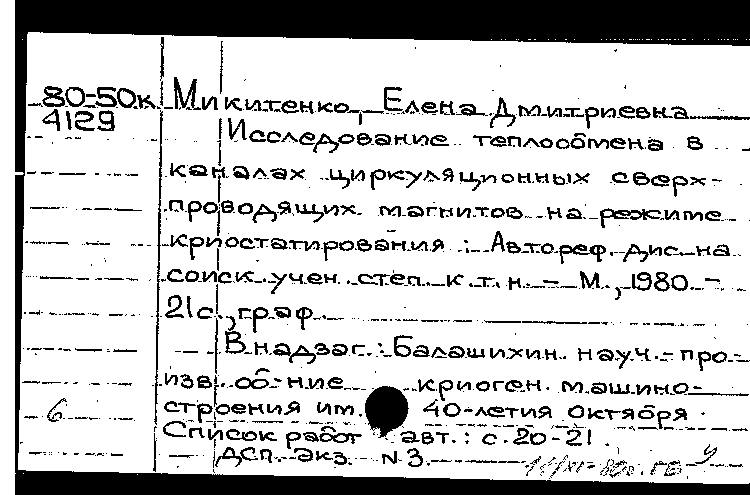 80-50к Микитенко, Елена Дмитриевна
4129 Исследование теплообмена в
каналах циркуляционных сверх-
проводящих магнитов на режиме
криостатирования : Автореф. дис. на
соиск. учен. степ. к.т.н. - М., 1980. -
21 с., граф.
В надзаг.: Балашихин. науч.-про-
изв. об-ние криоген. машино-
6 строения им. 40-летия октября.
Список работ авт.: с. 20-21.
ДСП. экз. N 3.